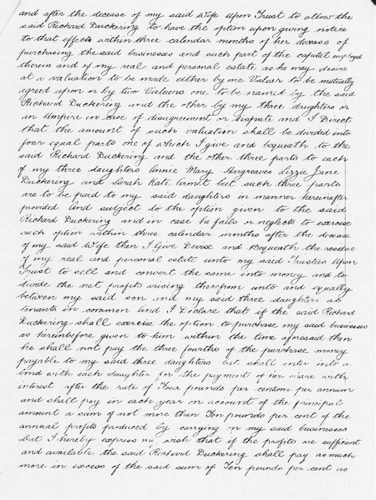 and after the decease of my said Wife upon Trust to allow the
said Richard Duckering to have the option upon giving notice
to that effect within three calendar months of her decease of
purchasing the said businesses and such part of the capital employed
therein and of my real and personal estate as he may desire
at a valuation to be made either by one Valuer to be mutually
agreed upon or by two Valuers one to be named by the said
Richard Duckering and the other by my three daughters or
an Umpire in case of disagreement or dispute and I Direct
that the amount of such valuation shall be divided into
four equal parts one of which I give and bequeath to the
said Richard Duckering and the other three parts to each
of my three daughters Annie Mary Hargreaves Lizzie Jane
Duckering and Sarah Kate but such three parts
are to be paid to my said daughters in manner hereinafter
provided and subject to the option given to the said
Richard Duckering and in case he fails or neglects to exercise
such option within three calendar months after the decease
of my said Wife then I Give Devise and Bequeath the residue
of my real and personal estate unto my said Trustees Upon
Trust to sell and convert the same into money and to
divide the net profits arising therefrom unto and equally
between my said son and my said three daughters as
tenants in common And I Declare that if the said Richard
Duckering shall exercise the option to purchase my said businesses
as hereinbefore given to him within the time aforesaid then
he shall not pay the three fourths of the purchase money
payable to my said three daughters but shall enter into a
bond with each daughter for the payment of her share with
interest after the rate of Four pounds per centum per annum
and shall pay in each year on account of the principal
amount a sum of not more than Ten pounds per cent of the
annual profits produced by carrying on my said businesses
but I hereby express my wish that if the profits are sufficient
and available the said Richard Duckering shall pay as much
more in excess of the said sum of Ten pounds per cent as